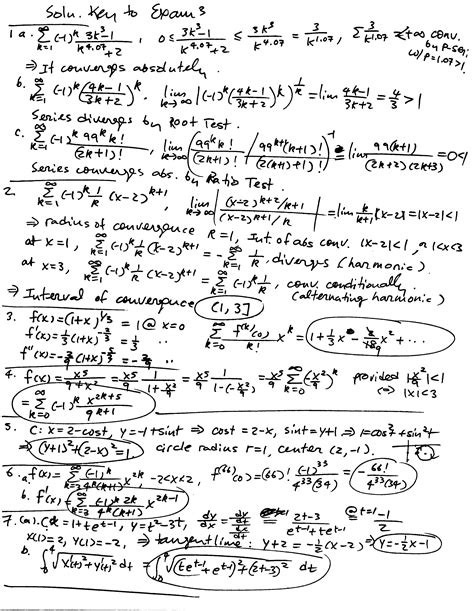 Soln. Key to Exam 3
1 a. ∑_{k=1}^{∞} (-1)^k (3k³-1)/(k^{4.07}+2), 0 ≤ (3k³-1)/(k^{4.07}+2) ≤ 3k³/k^{4.07} = 3/k^{1.07}, ∑ 3/k^{1.07} < +∞ conv. by p-ser. w/p=1.07>1.
⇒ It converges absolutely.
b. ∑_{k=1}^{∞} (-1)^k ((4k-1)/(3k+2))^k. lim_{k→∞} |(-1)^k ((4k-1)/(3k+2))^k|^{1/k} = lim (4k-1)/(3k+2) = 4/3 > 1
Series diverges by Root Test.
c. ∑_{k=1}^{∞} (-1)^k 99^k k!/(2k+1)!, lim_{k→∞} (99^k k!/(2k+1)! / 99^{k+1}(k+1)!/(2(k+1)+1)!)^{-1} = lim 99(k+1)/((2k+2)(2k+3)) = 0<1
Series converges abs. by Ratio Test.
2. ∑_{k=1}^{∞} (-1)^k 1/k (x-2)^{k+1}, lim_{k→∞} |(x-2)^{k+2}/k+1 / (x-2)^{k+1}/k| = lim k/(k+1) |x-2| = |x-2| < 1
⇒ radius of convergence R=1, Int. of abs conv. |x-2|<1, or 1<x<3
at x=1, ∑_{k=1}^{∞} (-1)^k 1/k (x-2)^{k+1} = -∑_{k=1}^{∞} 1/k, diverges (harmonic).
at x=3, ∑_{k=1}^{∞} (-1)^k 1/k (x-2)^{k+1} = ∑_{k=1}^{∞} (-1)^k 1/k, conv. conditionally
⇒ Interval of convergence (1, 3] (alternating harmonic)
3. f(x) = (1+x)^{1/3} = 1 @ x=0 ∑_{k=0}^{∞} f^{(k)}(0)/k! x^k = 1 + 1/3 x - x² + ...
f'(x) = 1/3 (1+x)^{-2/3} = 1/3 "
f''(x) = -2/9 (1+x)^{-5/3} = -2/9 "
4. f(x) = x⁵/(9+x²) = x⁵/9 · 1/(1+x²/9) = x⁵/9 · 1/(1-(-x²/9)) = x⁵/9 ∑_{k=0}^{∞} (-x²/9)^k provided |x²/9|<1
= ∑_{k=0}^{∞} (-1)^k x^{2k+5}/9^{k+1} |x|<3
5. C: x=2-cost, y=-1+sint ⇒ cost=2-x, sint=y+1 ⇒ 1=cos²t+sin²t
⇒ (y+1)²+(2-x)²=1 circle radius r=1, center (2,-1).
6. a. f(x) = ∑ (-1)^k/(4^k(k+1)) x^{2k}, -2<x<2, f^{(66)}(0) = (66)! (-1)^{33}/(4^{33}(34)) = -66!/(4^{33}(34))
b. f'(x) = ∑ (-1)^k 2k/(4^k(k+1)) x^{2k-1}
7. (a). x = 1+te^{t-1}, y=t²-3t, dy/dx = (dy/dt)/(dx/dt) = (2t-3)/(e^{t-1}+te^{t-1}) @ t=1 = -1/2
x(1)=2, y(1)=-2, ⇒ tangent line: y+2=-1/2(x-2) y=-1/2x-1
b. ∫_0^4 √(x'(t)²+y'(t)²) dt = ∫_0^4 √((te^{t-1}+e^{t-1})²+(2t-3)²) dt